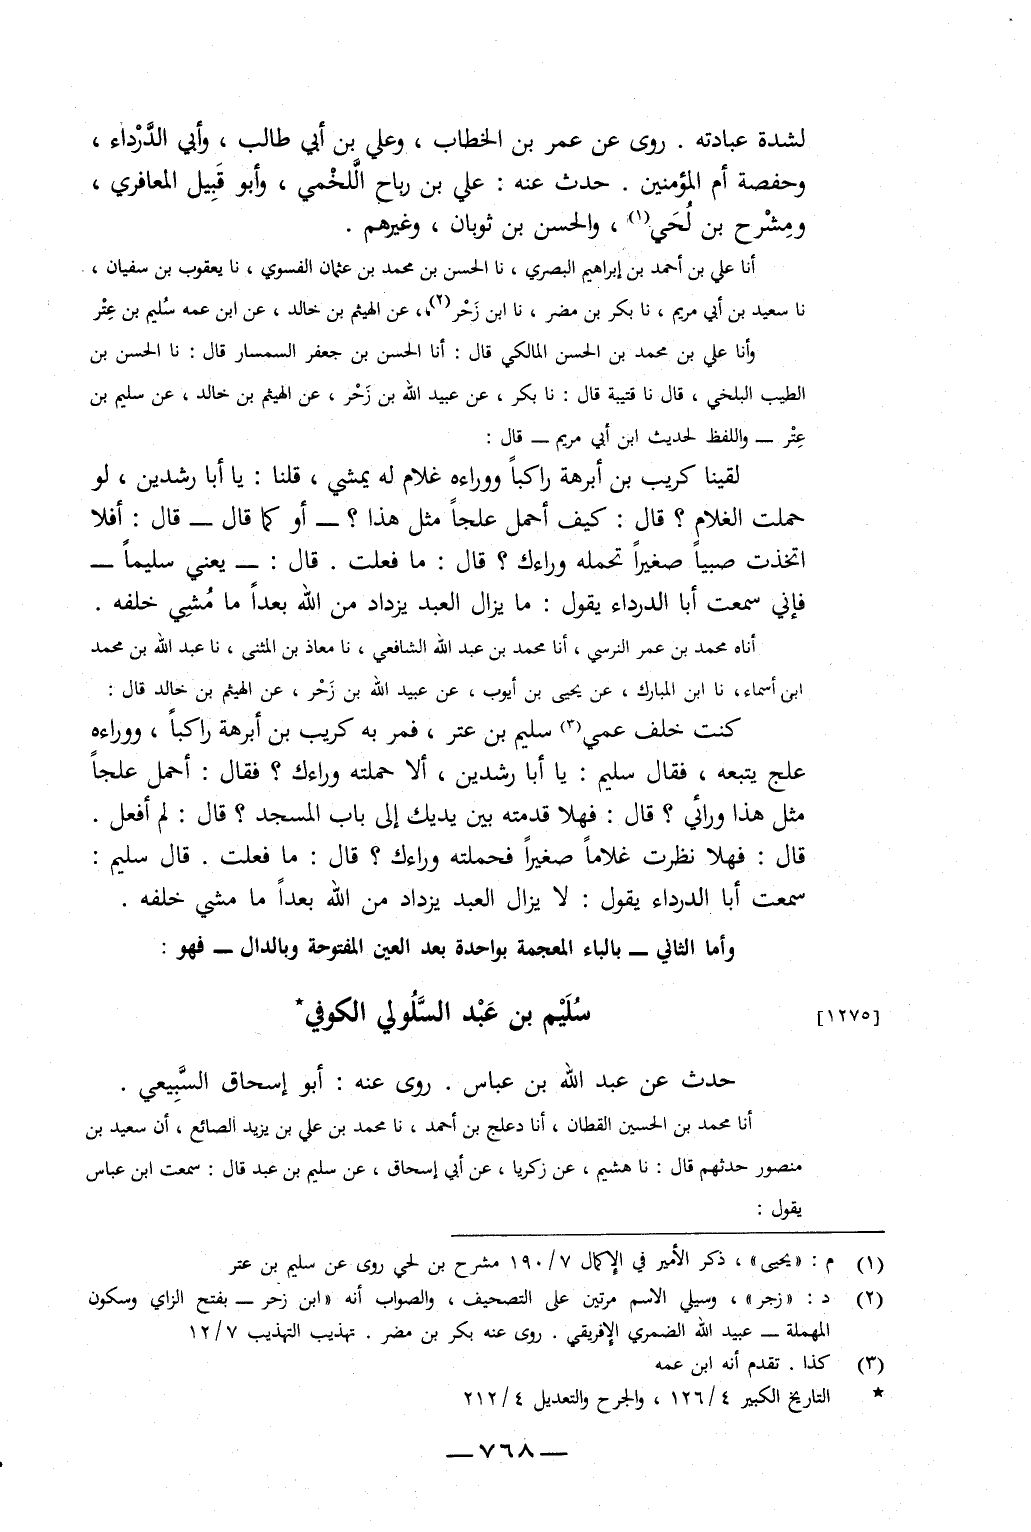 لشدة عبادته . روى عن عمر بن الخطاب ، وعلي بن أبي طالب ، وأبي الدَّرْداء ،
وحفصة أم المؤمنين . حدث عنه : علي بن رباح الَّلخْمي ، وأبو قَبِيل المعافري ،
ومِشْرح بن لُحَي(١) ، والحسن بن ثوبان ، وغيرهم .
أنا علي بن أحمد بن إبراهيم البصري ، نا الحسن بن محمد بن عثمان الفسوي ، نا يعقوب بن سفيان ،
نا سعيد بن أبي مريم ، نا بكر بن مضر ، نا ابن زَحْر(٢)،، عن الهيثم بن خالد ، عن ابن عمه سُليم بن عِتْر
وأنا علي بن محمد بن الحسن المالكي قال : أنا الحسن بن جعفر السمسار قال : نا الحسن بن
الطيب البلخي ، قال نا قتيبة قال : نا بكر ، عن عبيد الله بن زَحْر ، عن الهيثم بن خالد ، عن سليم بن
عِتْر ــ واللفظ لحديث ابن أبي مريم ــ قال :
لقينا كريب بن أبرهة راكباً ووراءه غلام له يمشي ، قلنا : يا أبا رشدين ، لو
حملت الغلام ؟ قال : كيف أحمل علجاً مثل هذا ؟ ــ أو كما قال ــ قال : أفلا
اتخذت صبياً صغيراً تحمله وراءك ؟ قال : ما فعلت . قال : ــ يعني سليماً ــ
فإني سمعت أبا الدرداء يقول : ما يزال العبد يزداد من الله بعداً ما مُشِي خلفه .
أناه محمد بن عمر النرسي ، أنا محمد بن عبد الله الشافعي ، نا معاذ بن المثنى ، نا عبد الله بن محمد
ابن أسماء، نا ابن المبارك ، عن يحيى بن أيوب ، عن عبيد الله بن زَحْر ، عن الهيثم بن خالد قال :
كنت خلف عمي(٣) سليم بن عتر ، فمر به كريب بن أبرهة راكباً ، ووراءه
علج يتبعه ، فقال سليم : يا أبا رشدين ، ألا حملته وراءك ؟ فقال : أحمل علجاً
مثل هذا ورائي ؟ قال : فهلا قدمته بين يديك إلى باب المسجد ؟ قال : لم أفعل .
قال : فهلا نظرت غلاماً صغيراً فحملته وراءك ؟ قال : ما فعلت . قال سليم :
سمعت أبا الدرداء يقول : لا يزال العبد يزداد من الله بعداً ما مشي خلفه .
وأما الثاني ــ بالباء المعجمة بواحدة بعد العين المفتوحة وبالدال ــ فهو :
[١٢٧٥] سُلَيْم بن عَبْد السَّلُولي الكوفي*
حدث عن عبد الله بن عباس . روى عنه : أبو إسحاق السَّبِيعي .
أنا محمد بن الحسين القطان ، أنا دعلج بن أحمد ، نا محمد بن علي بن يزيد الصائع ، أن سعيد بن
منصور حدثهم قال : نا هشيم ، عن زكريا ، عن أبي إسحاق ، عن سليم بن عبد قال : سمعت ابن عباس
يقول :
(١) م : «يحيى» ، ذكر الأمير في الإكمال ١٩٠/٧ مشرح بن لحي روى عن سليم بن عتر
(٢) د : «زجر» ، وسيلي الاسم مرتين على التصحيف ، والصواب أنه «ابن زحر ــ بفتح الزاي وسكون
المهملة ــ عبيد الله الضمري الإفريقي . روى عنه بكر بن مضر . تهذيب التهذيب ١٢/٧
(٣) كذا . تقدم أنه ابن عمه
* التاريخ الكبير ١٢٦/٤ ، والجرح والتعديل ٢١٢/٤
ــ ٧٦٨ ــ